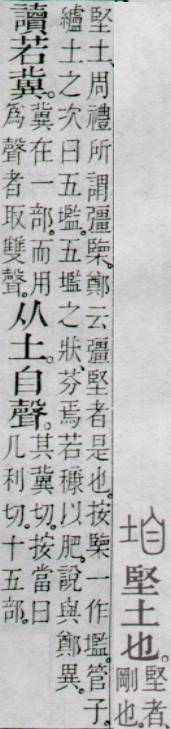 垍 堅土也。
堅者、
剛也。
堅土、周禮所謂彊㯺。鄭云彊堅者是也。按㯺一作壏。管子。
纑土之次曰五壏。五壏之狀、芬焉若糠以肥。說與鄭異。
讀若冀。
冀在一部。而用
爲聲者取雙聲。
从土。自聲。
其冀切。按當曰
几利切。十五部。